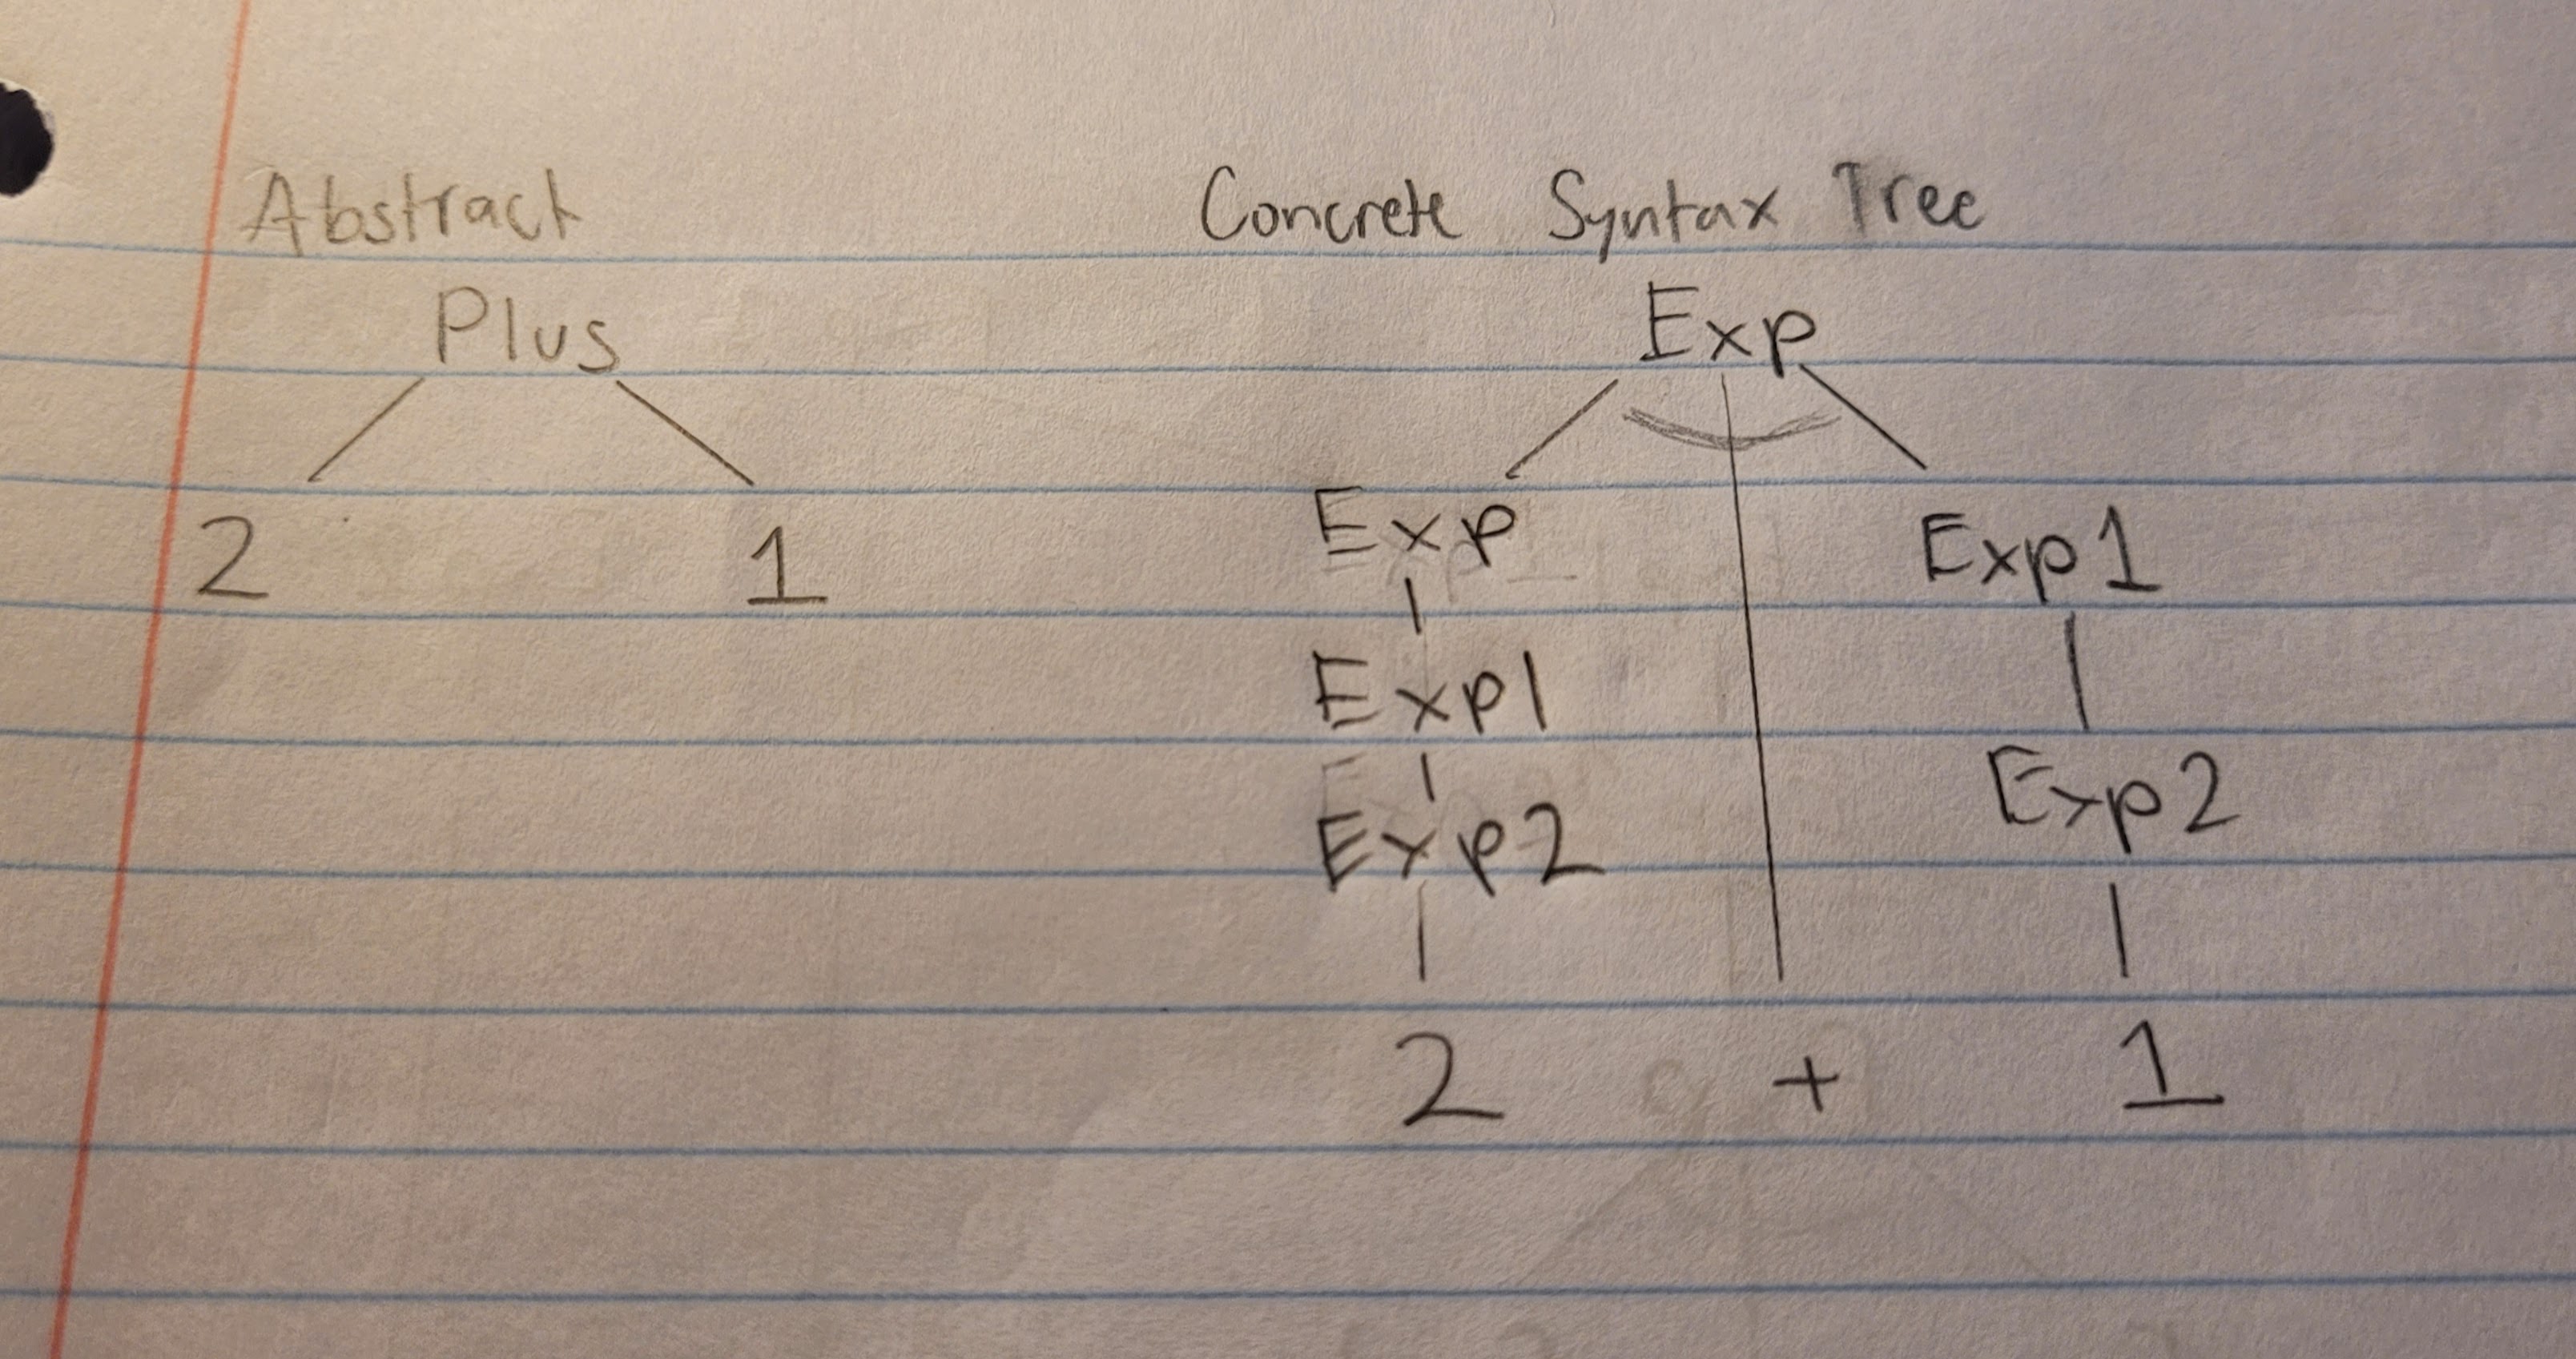 Abstract
Plus
2 1
Concrete Syntax Tree
Exp
Exp Exp1
Exp1
Exp2 Exp2
2 + 1